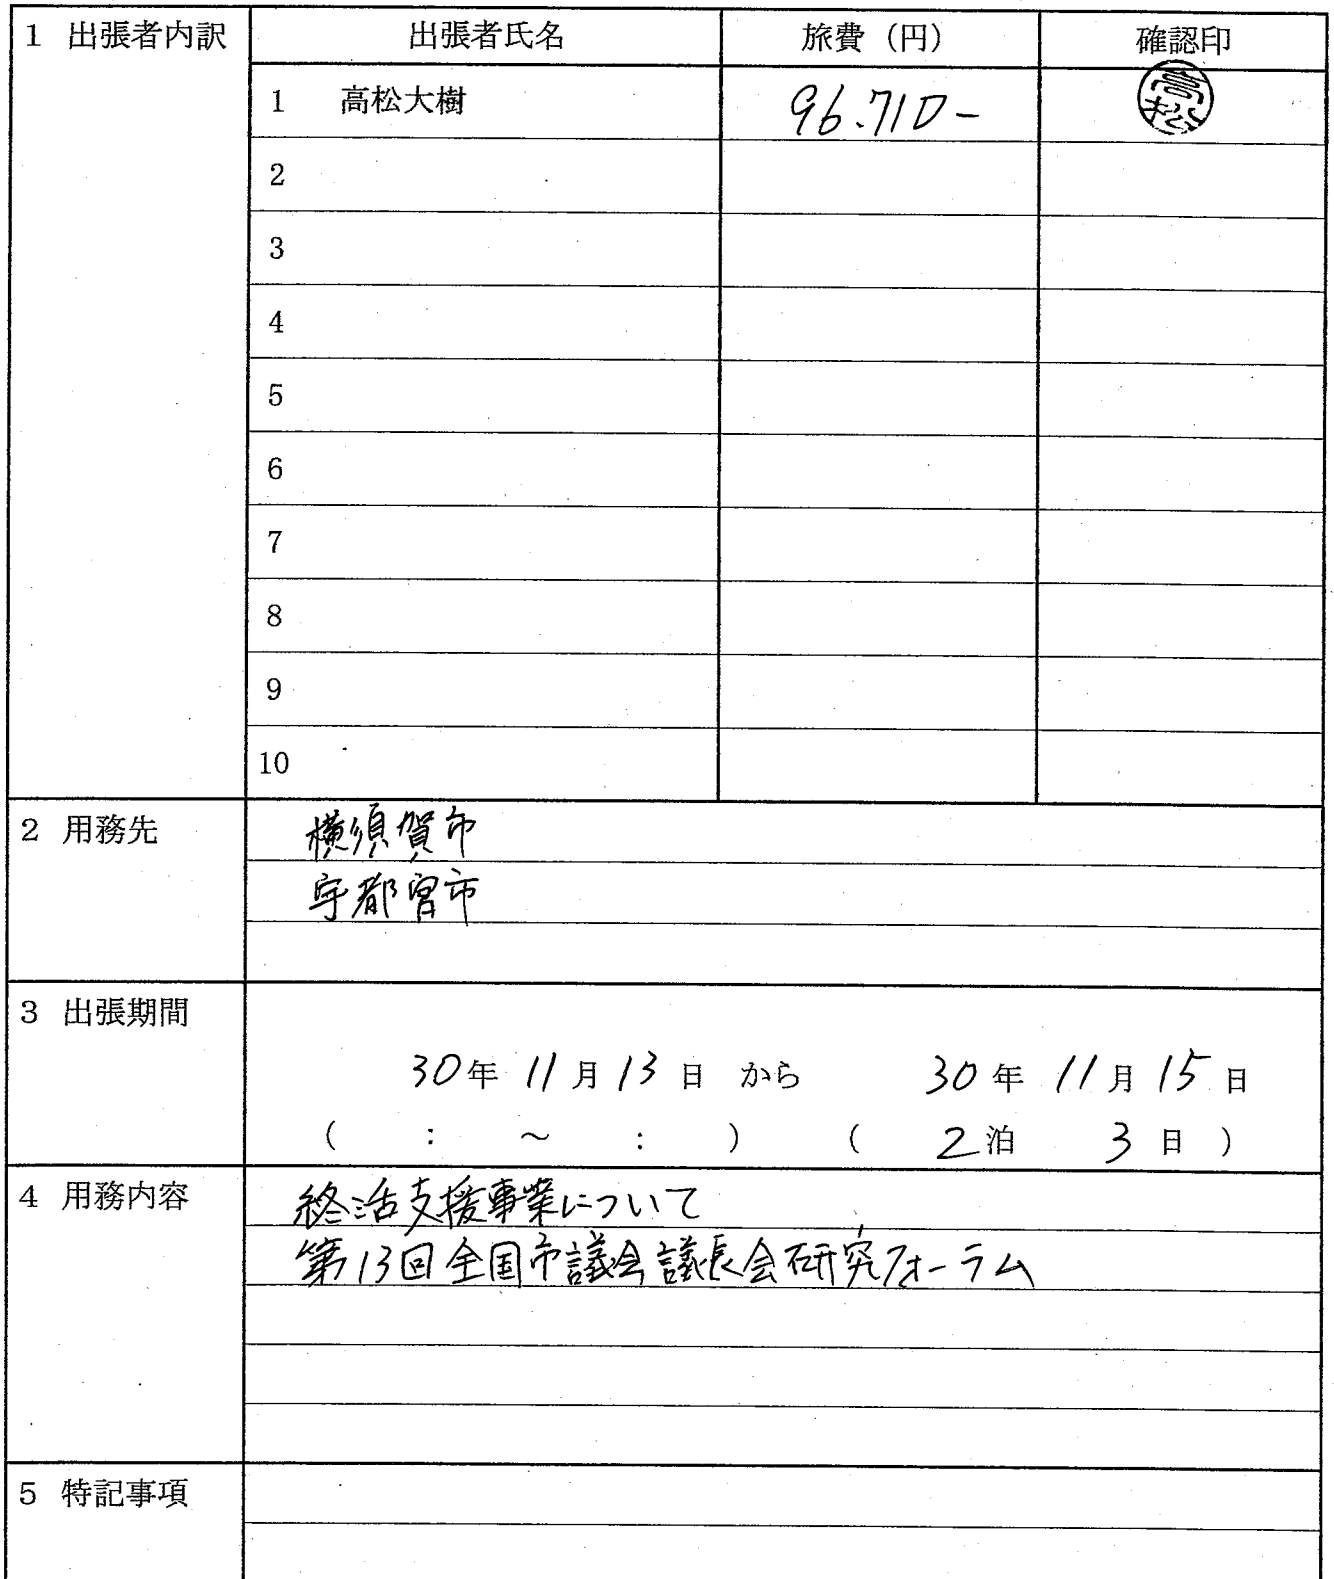 1 出張者内訳 出張者氏名 旅費（円） 確認印
1 高松大樹 96.710- 高松
2
3
4
5
6
7
8
9
10
2 用務先 横須賀市
宇都宮市
3 出張期間
30年 11月13日 から 30年 11月15日
（ ： ～ ： ） （ 2泊 3日 ）
4 用務内容 終活支援事業について
第13回全国市議会議長会研究フォーラム
5 特記事項